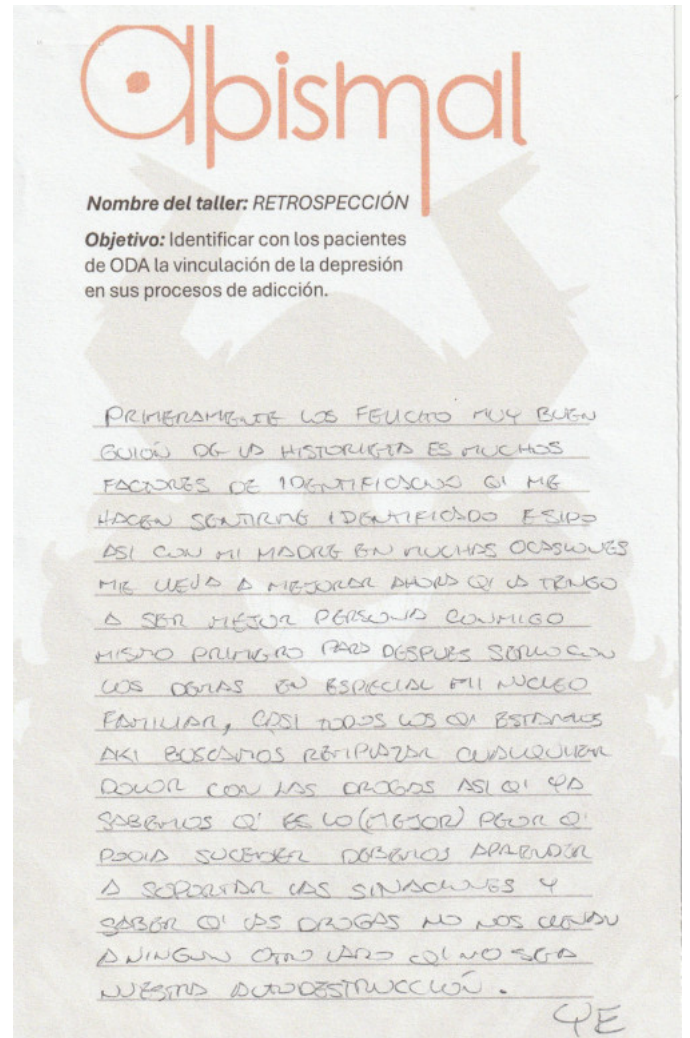 abismal
Nombre del taller: RETROSPECCIÓN
Objetivo: Identificar con los pacientes
de ODA la vinculación de la depresión
en sus procesos de adicción.
PRIMERAMENTE LOS FELICITO MUY BUEN
GUIÓN DE LA HISTORIETA ES MUCHOS
FACTORES DE QI ME
HACEN SENTIRME IDENTIFICADO E SIDO
ASI CON MI MADRE EN MUCHAS OCASIONES
ME LLEVA A MEJORAR AHORA QI LA TENGO
A SER MEJOR PERSONA CONMIGO
MISMO PRIMERO PARA DESPUES SERLO CON
LOS DEMAS EN ESPECIAL MI NUCLEO
FAMILIAR, CASI TODOS LOS QI ESTAMOS
AKI BUSCAMOS REMPLAZAR CUALQUIER
DOLOR CON LAS DROGAS ASI QI YA
SABEMOS Q' ES LO (MEJOR) PEOR Q'
PODIA SUCEDER DEBEMOS APRENDER
A SOPORTAR LAS Y
SABER Q' LAS DROGAS NO NOS LLEVAN
A NINGUN OTRO LADO QI NO SEA
NUESTRA AUTODESTRUCCIÓN.
YE